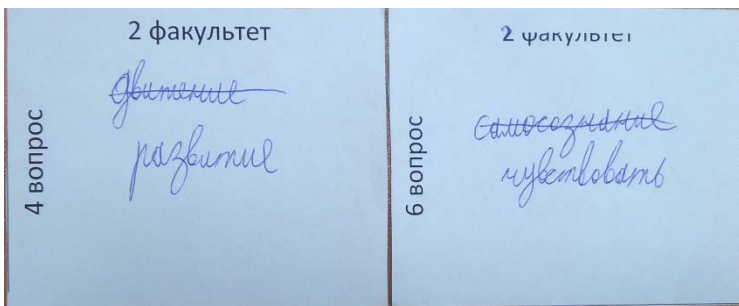 2 факультет
4 вопрос
движение
развитие
2 факультет
6 вопрос
самосознание
чувствовать